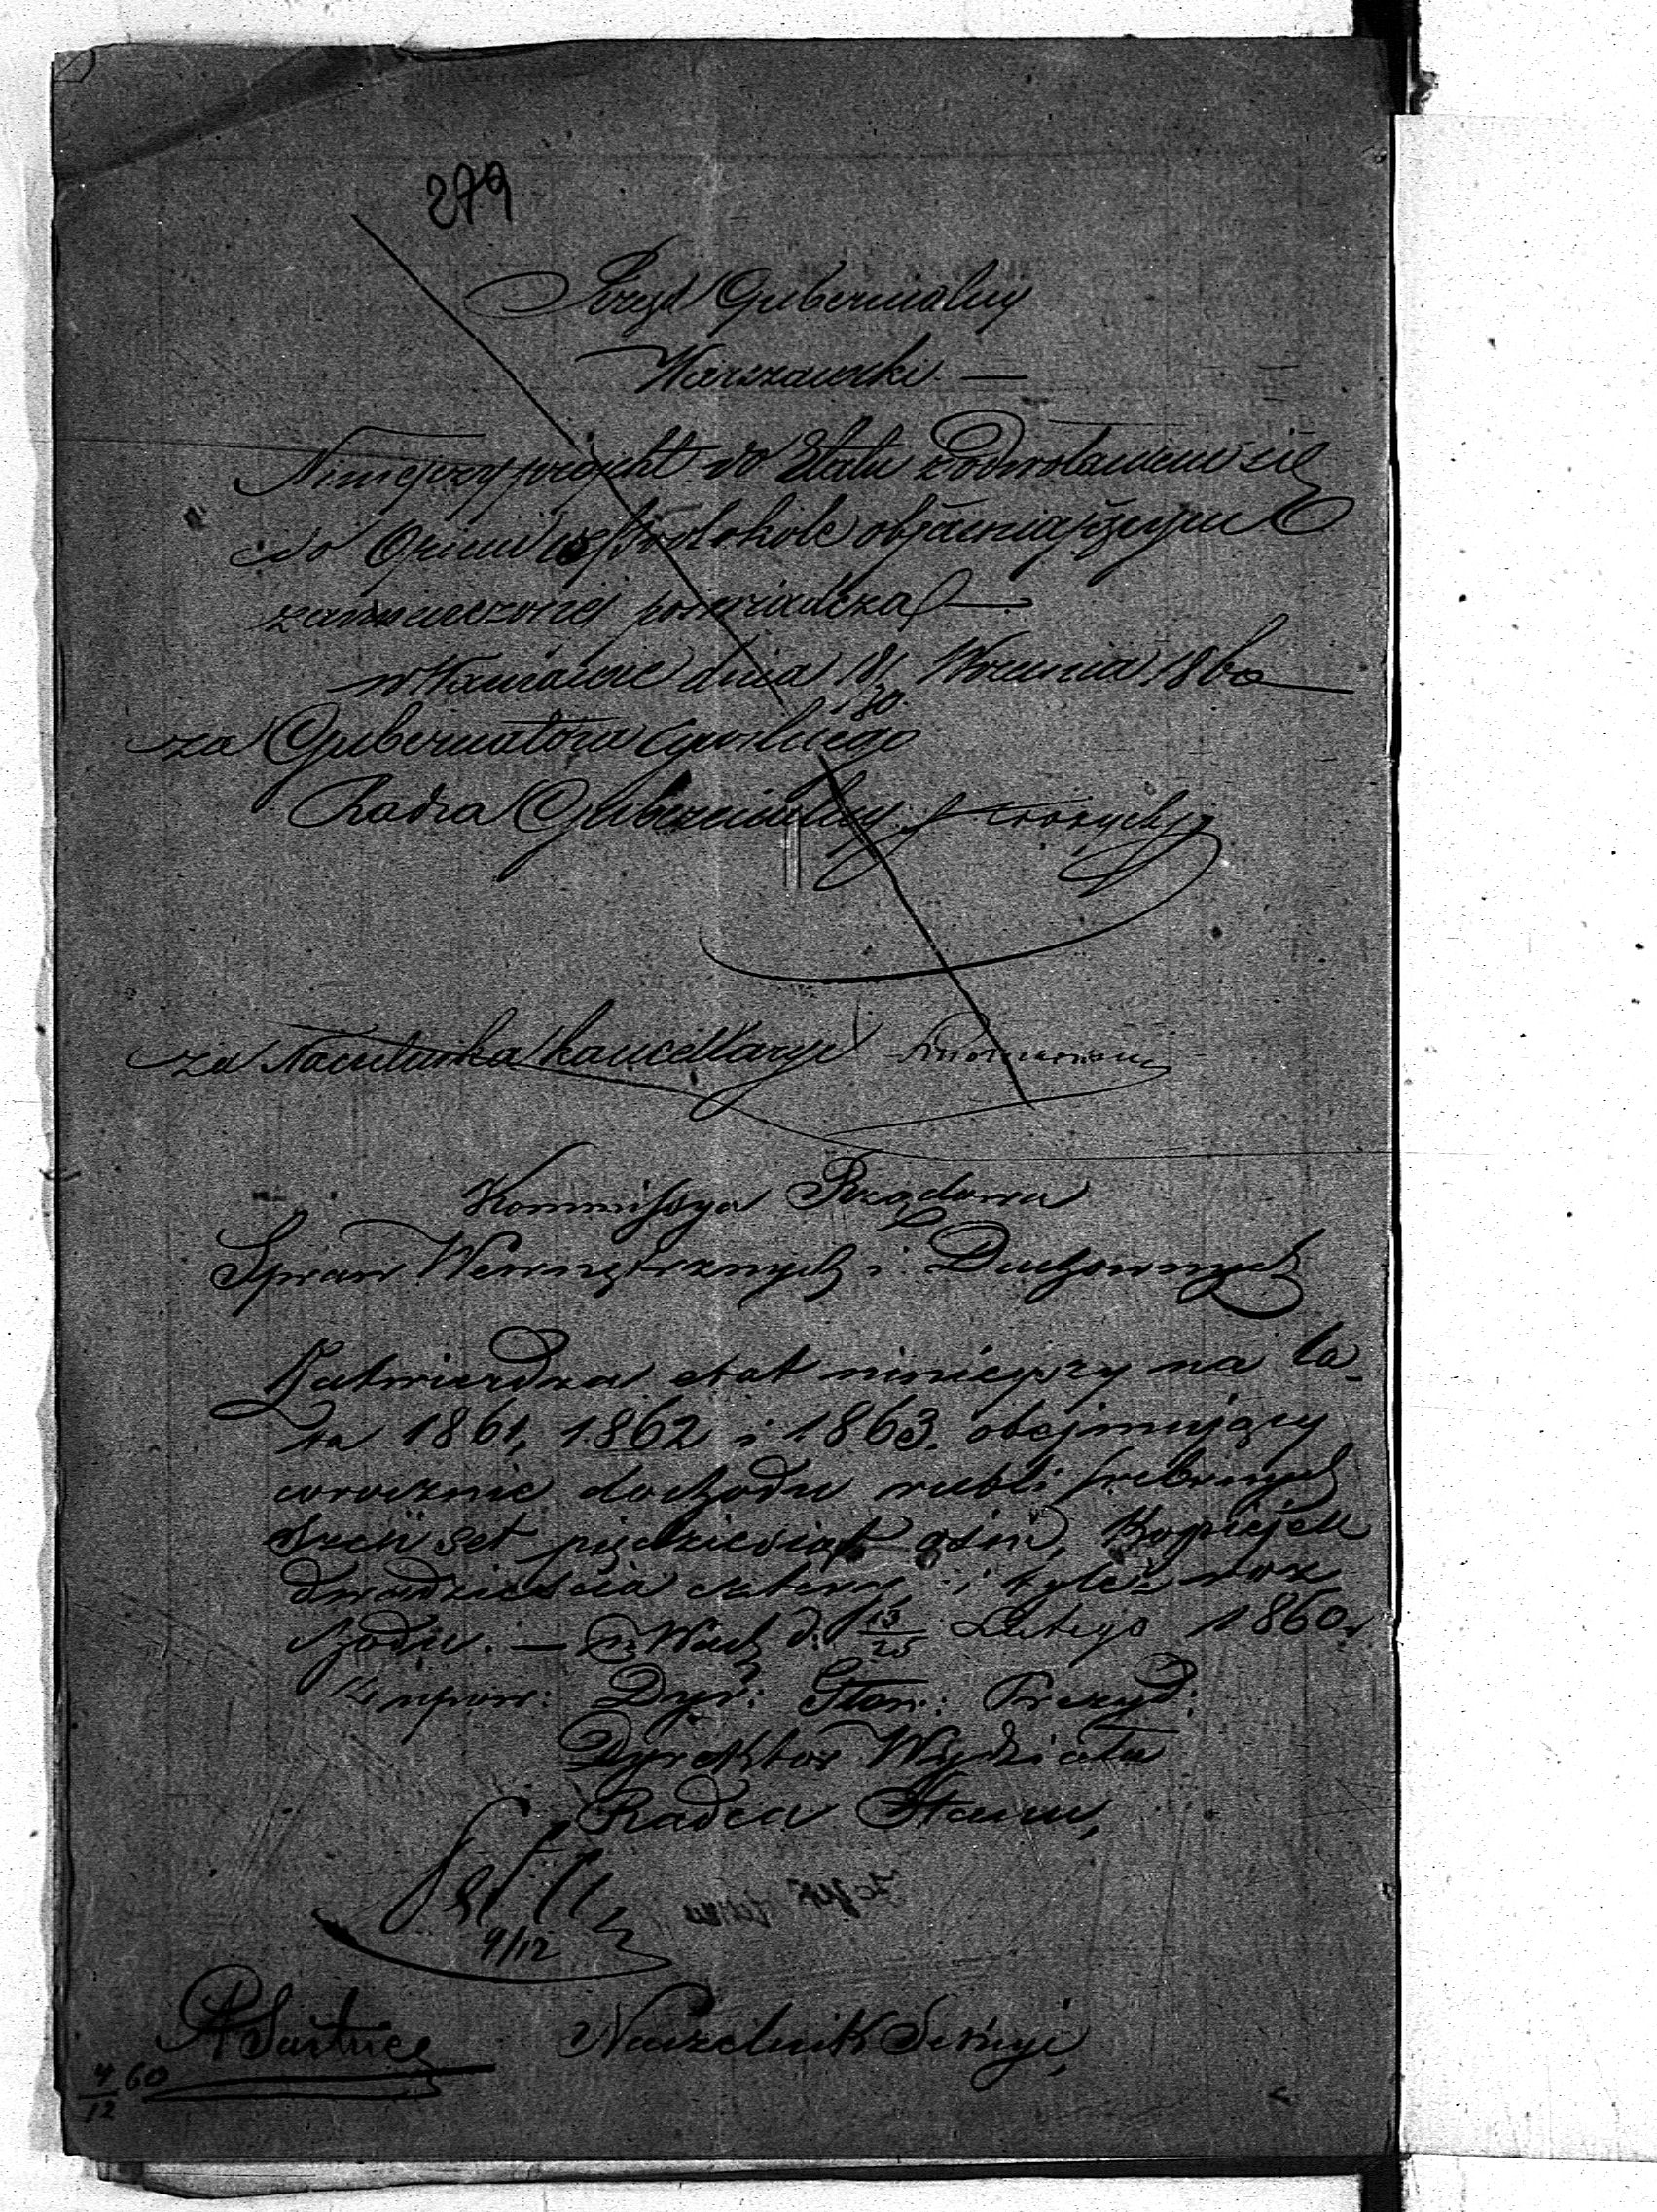 279
Rząd Gubernialny
Warszawski. —
Niniejszy projekt do Etatu z odwołaniem się
do Opinii w Protokole objaśniającym
zamieszczonej poświadcza —
w Warszawie dnia 18/30 Września 1860
za Gubernatora Cywilnego
Radca Gubernialny
za Naczelnika Kancellaryi
Kommissya Rządowa
Spraw Wewnętrznych i Duchownych
Zatwierdza etat niniejszy na la-
ta 1861, 1862 i 1863. obejmujący
corocznie dochodu rubli srebrnych
sześć set pięćdziesiąt ośm, Kopiejek
dwadzieścia cztery i tyleż roz
chodu. — w Warsz. d. 13/25 Lutego 1860 r.
z upow: Dyr: Głów: Prezyd:
Dyrektor Wydziału
Radca Stanu,
4/12
Naczelnik Sekcyi,
4/12 60